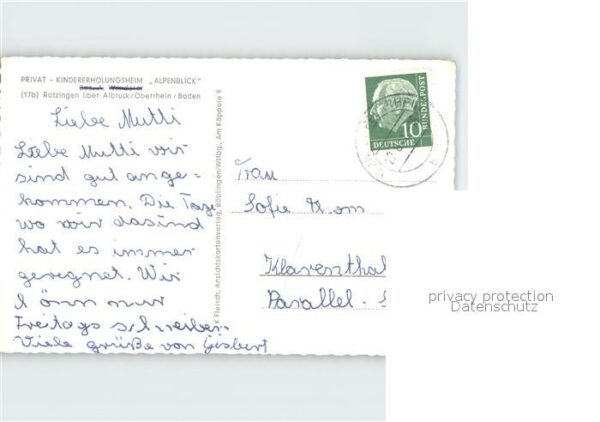 PRIVAT - KINDERERHOLUNGSHEIM „ALPENBLICK"
(17b) Rotzingen über Albruck/Oberrhein/Baden
Liebe Mutti
Liebe Mutti wir
sind gut ange-
kommen. Die Tage
wo wir dasind
hat es immer
geregnet. Wir
könn nur
Freitags schreiben
Viele grüße von Gisbert
K Fleisch, Ansichtskartenverlag, Böblingen/Wttbg., Am Käppele 9
10
DEUTSCHE
BUNDESPOST
Frau
Sofie
Klarenthal
Parallel.
privacy protection
Datenschutz